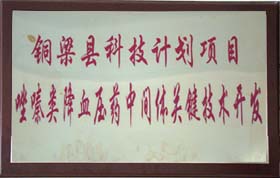 铜梁县科技计划项目
唑嗪类降血压药中间体关键技术开发